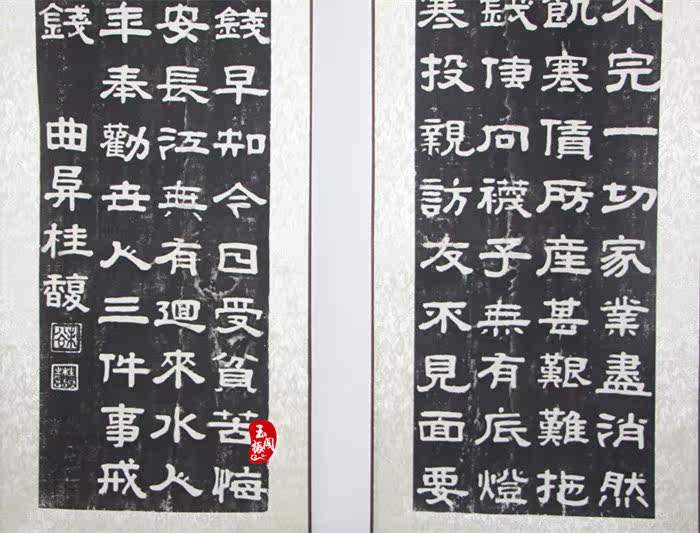 不完一切家業盡消然
飢寒債房產甚艱難拖
錢使向襪子無有底燈
寒投親訪友不見面要
錢早知今日受貧苦悔
安長江無有迴來水人
年奉勸世人三件事戒
錢 曲阜桂馥